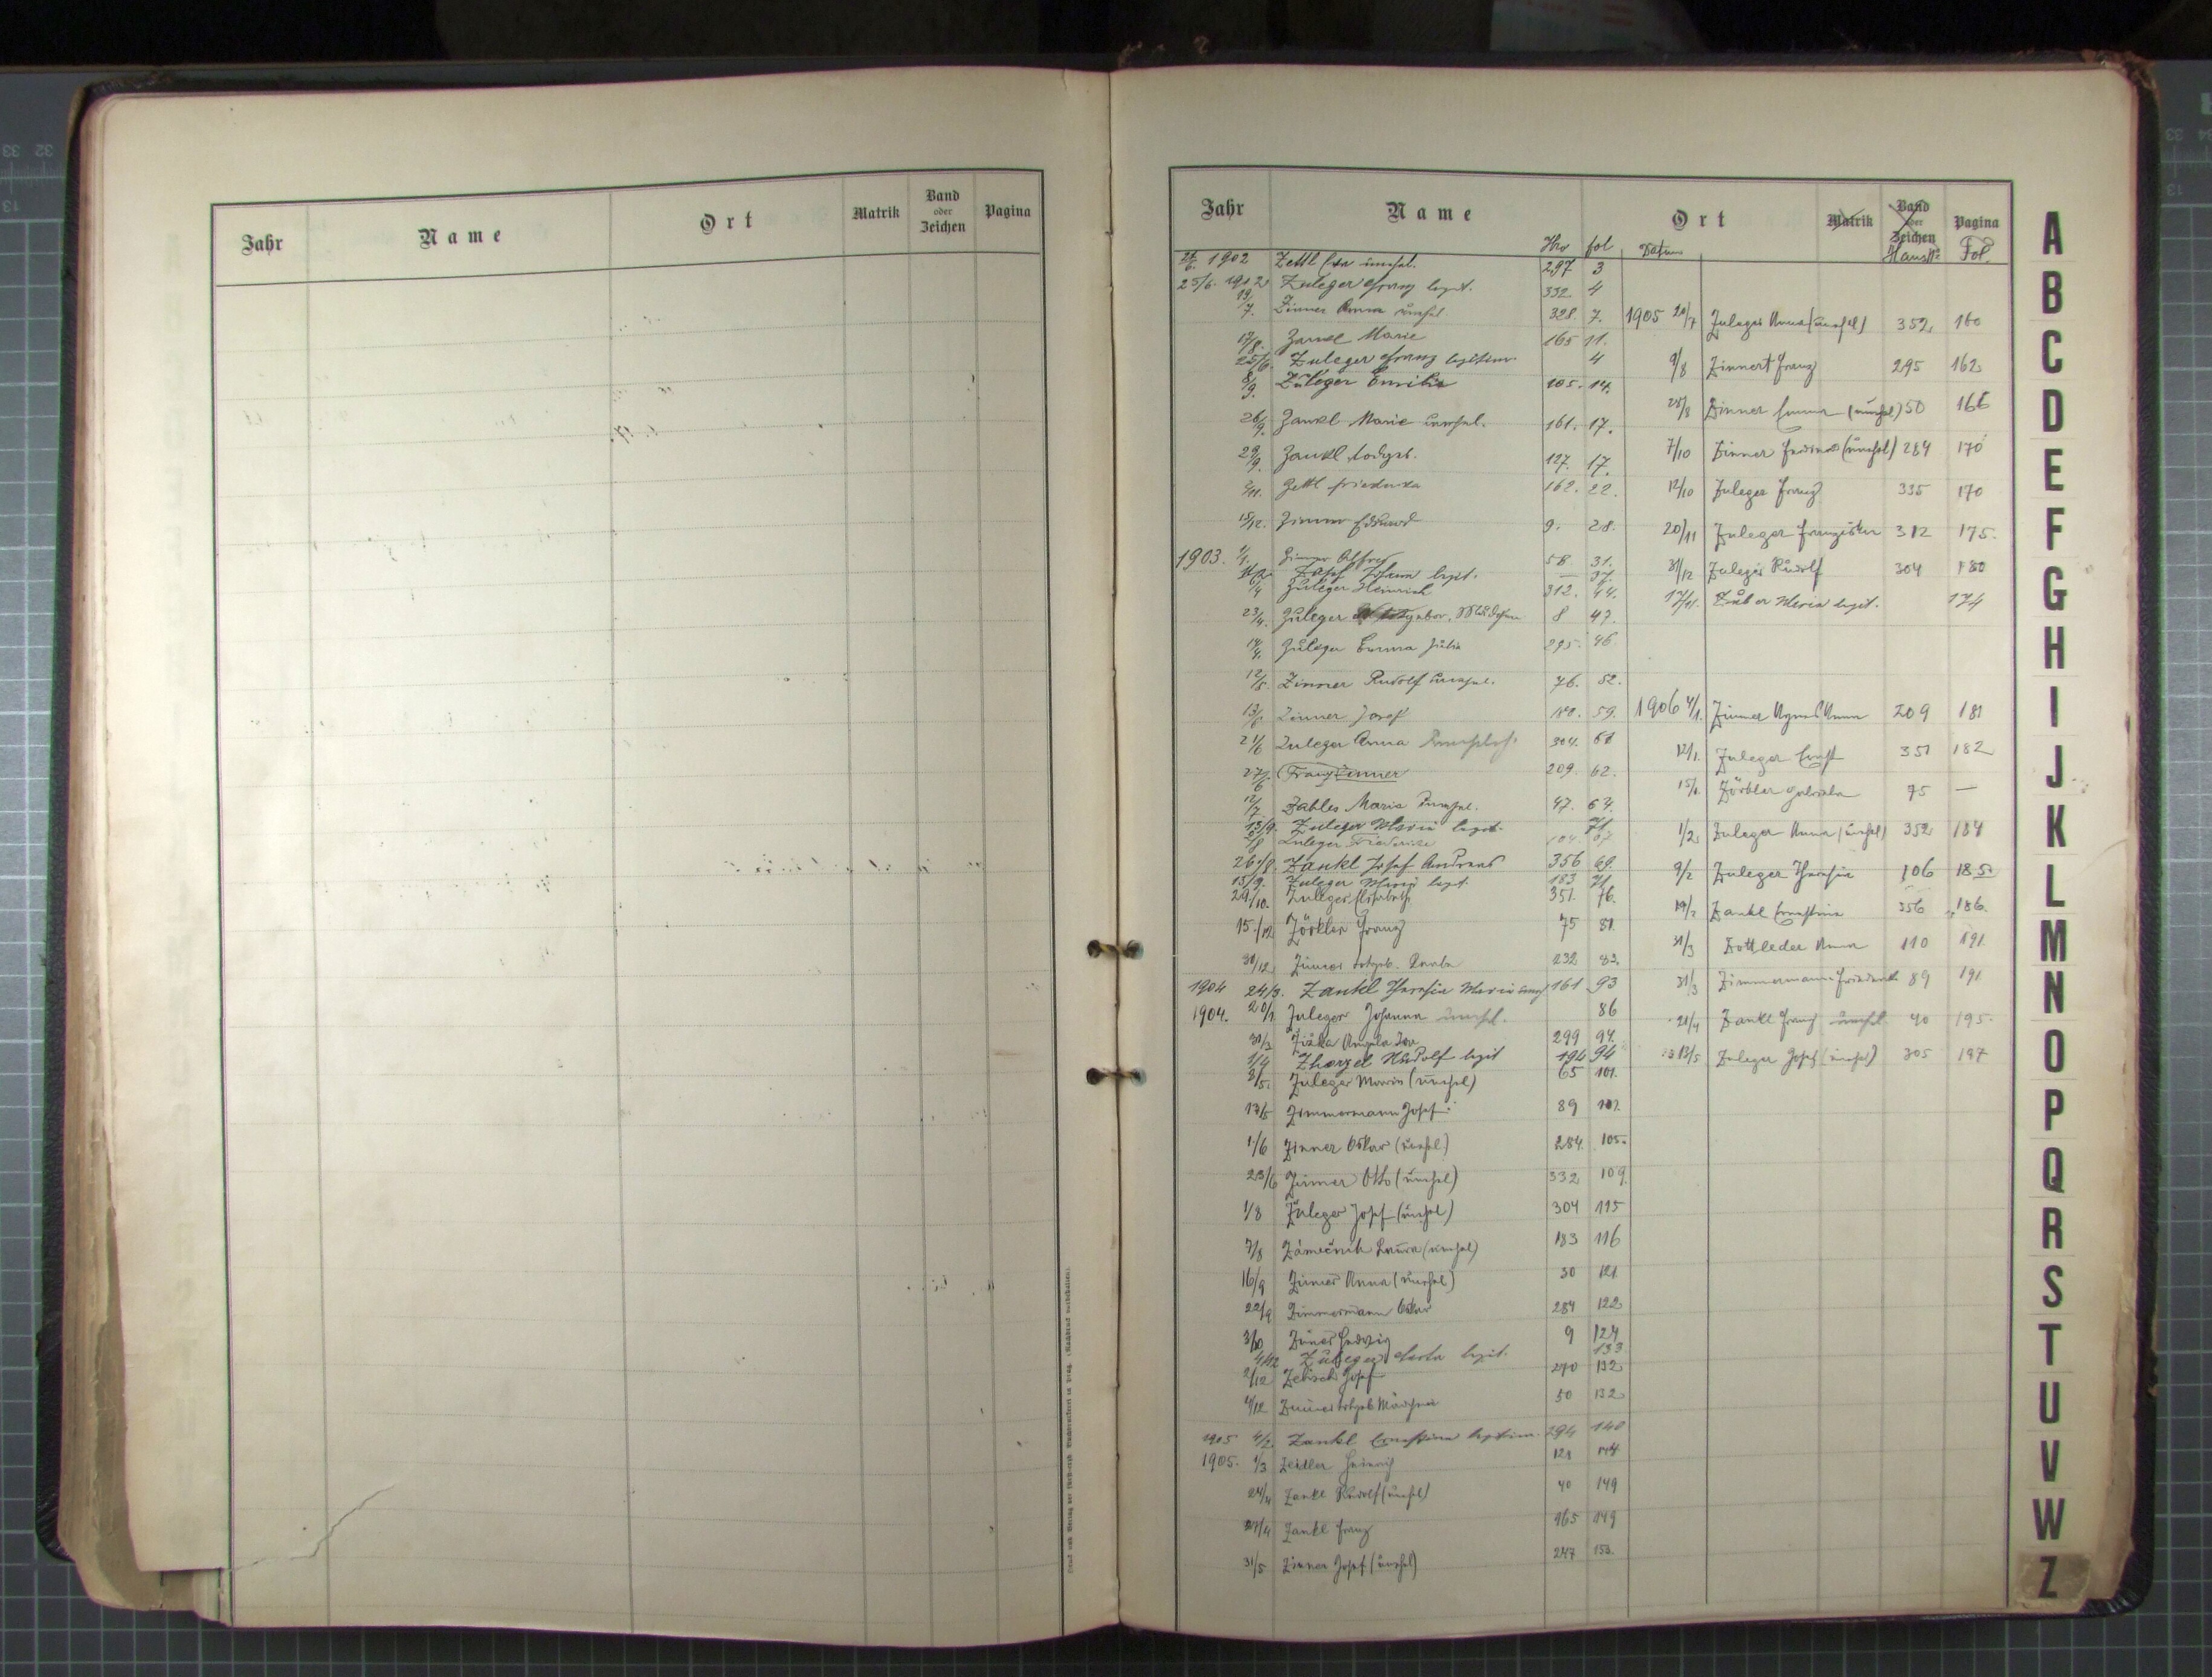 Jahr Name Ort Matrik Band oder Zeichen Pagina
Jahr Name Ort Matrik Band oder Zeichen Pagina
Hro fol Datum Haus № Fol.
1902 Zettl unehel. 297 3
25/6. 1902 Zuleger Franz legit. 332 4
19/7. Zinner Anna unehel 328 7.
17/8. Zankl Marie 165 11.
25/6. Zuleger Franz legitim. 4
8/9. Zuleger Emilie 105. 14.
26/9. Zankl Marie unehel. 161. 17.
29/9. Zankl todgeb. 127. 17.
2/11. Zettl Friederika 162. 22.
15/12. Zinner Eduard 9. 28.
1903. 1/1. Zinner Alfred 58 31.
Johann legit. — 37.
6/4 Zuleger Heinrich 312. 44.
23/4. Zuleger Mädchen 8 47.
14/4. Zuleger Emma Julia 295. 46.
12/5. Zinner Rudolf unehel. 76. 52.
13/6 Zinner Josef 59.
21/6 Zuleger Anna 304. 61
27/6 Franz Zinner 209. 62.
12/7. Zahler Maria unehel. 47. 64.
15/9. Zuleger Maria legit. 71
Zuleger Friederike
26/8. Zankl Josef Andreas 356 69.
15/9. Zuleger Maria legit. 183 71
29/10. Zuleger Elisabeth 351. 76.
15./12 Zörkler Franz 75 81.
31/12 Zinner todgeb. Knabe 232 83.
1904 24/3. Zankl Theresia Maria unehel 161 93
1904. 20/1. Zuleger Johanna unehel. 86
31/3 Ziska Angela 299 94.
1/4 Rudolf legit 194 94
3/5. Zuleger Maria (unehel) 65 101.
17/5 Zimmermann Josef 89 102
1/6 Zinner Oskar (unehel) 284. 105.
23/6 Zinner Otto (unehel) 332 109.
1/8 Zuleger Josef (unehel) 304 115
7/8 Zámečník Laura (unehel) 183 116
16/9 Zinner Anna (unehel) 30 121.
22/9 Zimmermann Oskar 284 122
3/10 Zinner Hedwig 9 124
4/12 Zuleger legit. 133
2/12 Josef 270 132
4/12 Zinner todgeb Mädchen 50 132
1905 4/2. Zankl Ernestine legitim. 294 140
1905. 1/3 Zeidler Heinrich 121 144
24/4 Zankl Rudolf (unehel) 40 149
27/4 Zankl Franz 165 149
31/5 Zinner Josef (unehel) 247 153.
1905 20/7 Zuleger Anna (unehel) 352. 160
9/8 Zinnert Franz 295 162
28/8 Zinner Emma (unehel) 50 166
7/10 Zinner Ferdinand (unehel) 284 170
12/10 Zuleger Franz 335 170
20/11 Zuleger Franziska 312 175.
31/12 Zuleger Rudolf 304 180
17/11. Maria legit. 174
1906 4/1. Zinner Agnes Anna 209 181
12/1. Zuleger Ernst 351 182
15/1. Zörkler Gabriela 75 —
1/2. Zuleger Anna (unehel) 352 184
9/2 Zuleger Theresia 106 185.
19/2 Zankl Ernestine 356 186.
31/3 Zottleder Anna 110 191
31/3 Zimmermann Friederike 89 191
21/4 Zankl Franz unehel 40 195.
13/5 Zuleger Josef (unehel) 305 197
A
B
C
D
E
F
G
H
I
J
K
L
M
N
O
P
Q
R
S
T
U
V
W
Z